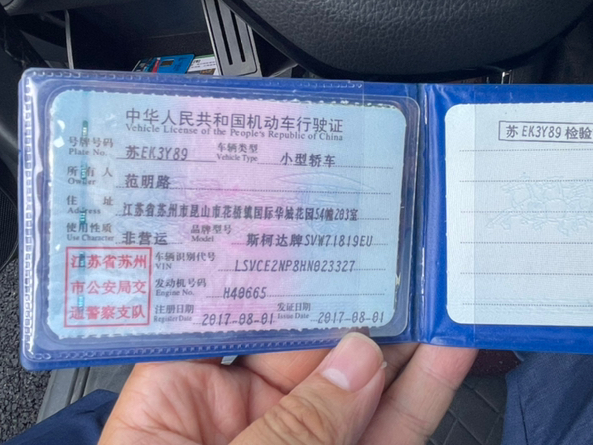 中华人民共和国机动车行驶证
Vehicle License of the People's Republic of China
号牌号码 Plate No. 苏EK3Y89 车辆类型 Vehicle Type 小型轿车
所有人 Owner 范明路
住址 Address 江苏省苏州市昆山市花桥镇国际华城花园54幢203室
使用性质 Use Character 非营运 品牌型号 Model 斯柯达牌SVW71819EU
江苏省苏州市公安局交通警察支队
车辆识别代号 VIN LSVCE2NP8HN023327
发动机号码 Engine No. H40665
注册日期 Register Date 2017-08-01 发证日期 Issue Date 2017-08-01
苏EK3Y89 检验